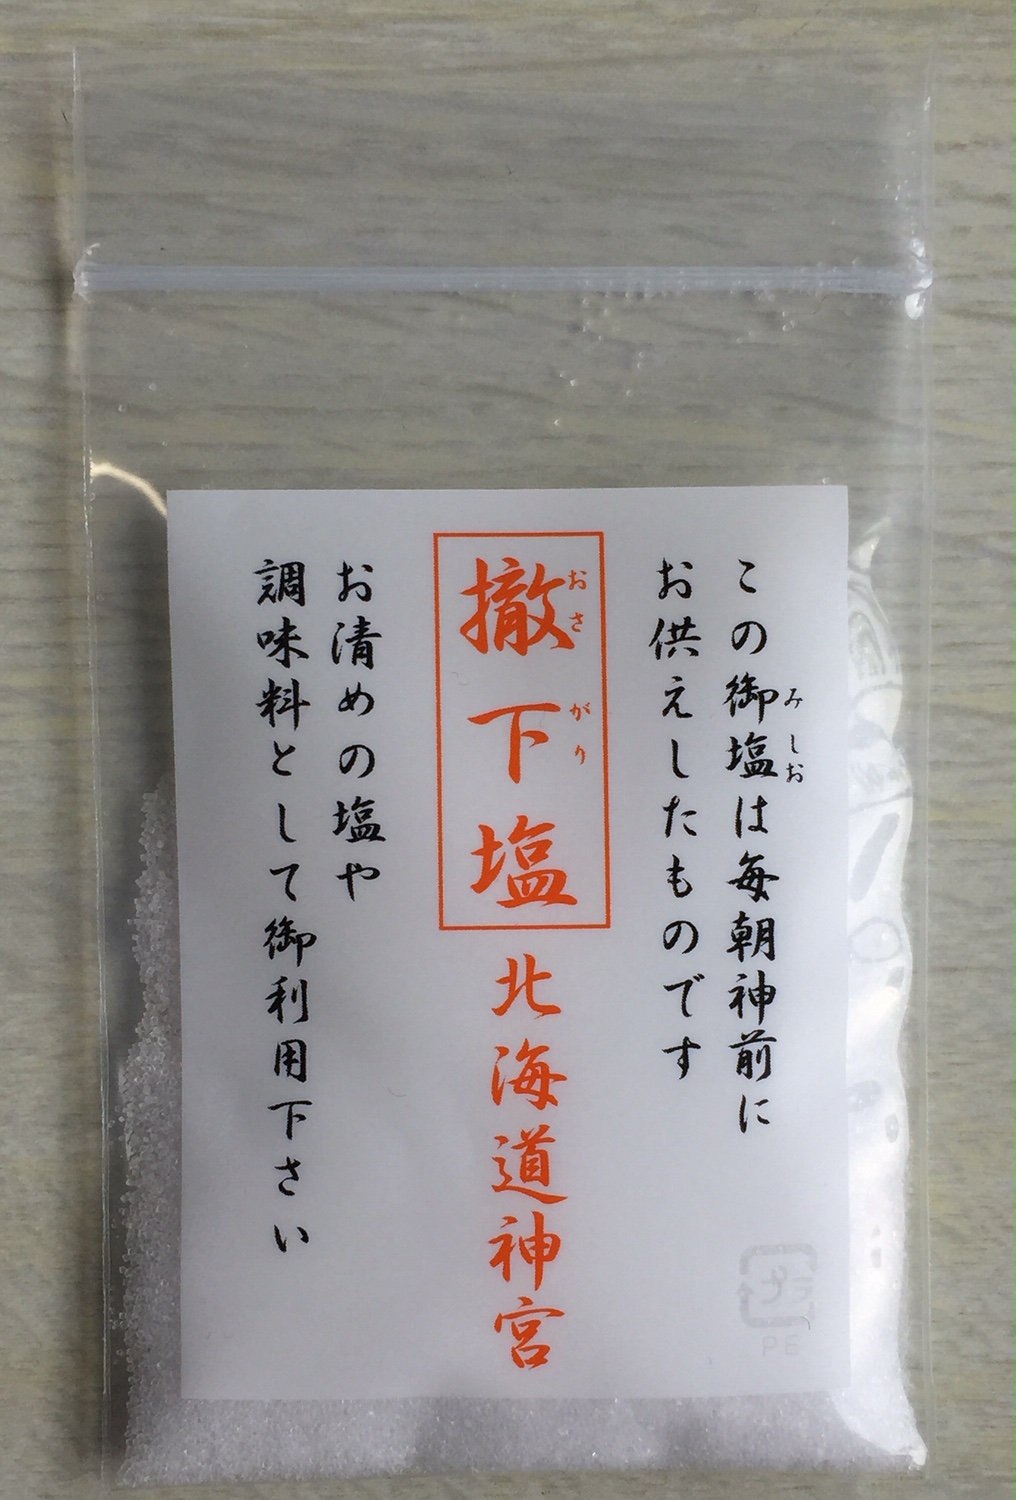 この御塩は毎朝神前に
みしお
お供えしたものです
撤下塩
おさがり
北海道神宮
お清めの塩や
調味料として御利用下さい
プラ
PE